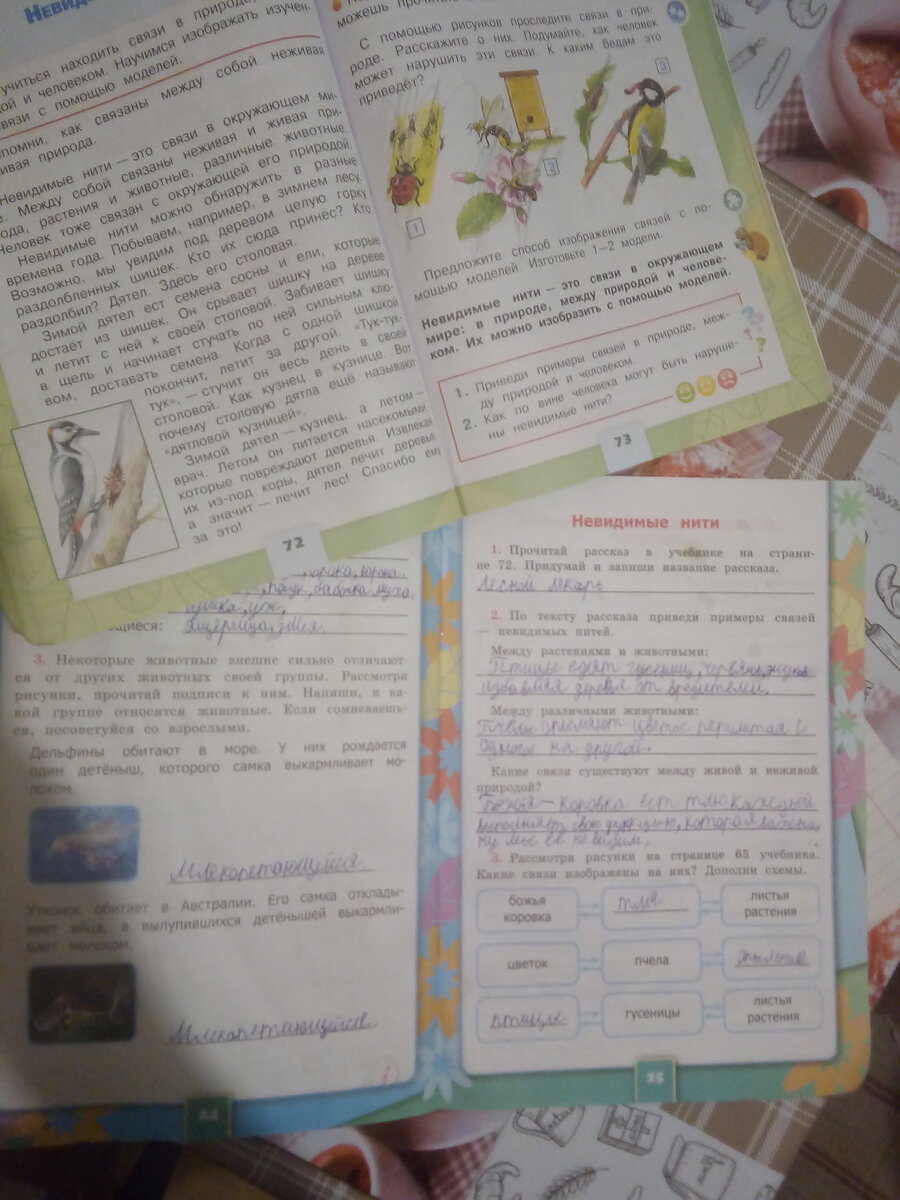 Невиди
учиться находить связи в природе,
ой и человеком. Научимся изображать изучен-
связи с помощью моделей.
помни, как связаны между собой неживая
ивая природа.
Невидимые нити — это связи в окружающем ми-
е. Между собой связаны неживая и живая при-
ода, растения и животные, различные животные.
Человек тоже связан с окружающей его природой.
Невидимые нити можно обнаружить в разные
времена года. Побываем, например, в зимнем лесу.
Возможно, мы увидим под деревом целую горку
раздолбленных шишек. Кто их сюда принёс? Кто
раздолбил? Дятел. Здесь его столовая.
Зимой дятел ест семена сосны и ели, которые
достаёт из шишек. Он срывает шишку на дереве
и летит с ней к своей столовой. Забивает шишку
в щель и начинает стучать по ней сильным клю-
вом, доставать семена. Когда с одной шишкой
покончит, летит за другой. «Тук-тук-
тук», — стучит он весь день в своей
столовой. Как кузнец в кузнице. Вот
почему столовую дятла ещё называют
«дятловой кузницей».
Зимой дятел — кузнец, а летом —
врач. Летом он питается насекомыми,
которые повреждают деревья. Извлекая
их из-под коры, дятел лечит деревья,
а значит — лечит лес! Спасибо ему
за это!
72
можешь
С помощью рисунков проследите связи в при-
роде. Расскажите о них. Подумайте, как человек
может нарушить эти связи. К каким бедам это
приведёт?
1
2
3
Предложите способ изображения связей с по-
мощью моделей. Изготовьте 1—2 модели.
Невидимые нити — это связи в окружающем
мире: в природе, между природой и челове-
ком. Их можно изобразить с помощью моделей.
1. Приведи примеры связей в природе, меж-
ду природой и человеком.
2. Как по вине человека могут быть наруше-
ны невидимые нити?
73
орока, ворона.
паук, бабочка муха,
уж,
щиеся: ящерица, змея.
3. Некоторые животные внешне сильно отличают-
ся от других животных своей группы. Рассмотри
рисунки, прочитай подписи к ним. Напиши, к ка-
кой группе относятся животные. Если сомневаешь-
ся, посоветуйся со взрослыми.
Дельфины обитают в море. У них рождается
один детёныш, которого самка выкармливает мо-
локом.
Млекопетающийся
Утконос обитает в Австралии. Его самка отклады-
вает яйца, а вылупившихся детёнышей выкармли-
вает молоком.
Млекопетающийся
24
Невидимые нити
1. Прочитай рассказ в учебнике на страни-
це 72. Придумай и запиши название рассказа.
Лесной лекарь
2. По тексту рассказа приведи примеры связей
— невидимых нитей.
Между растениями и животными:
Птицы едят гусениц,
избавляя деревья от вредителей.
Между различными животными:
Пчелы опыляют цветы с
одного на другой.
Какие связи существуют между живой и неживой
природой?
Божья — коровка ест тлю каждый
выполняет свою функцию, которая важна,
ну мы её не видим.
3. Рассмотри рисунки на странице 65 учебника.
Какие связи изображены на них? Дополни схемы.
божья коровка
тля
листья растения
цветок
пчела
опыление
птицы
гусеницы
листья растения
25